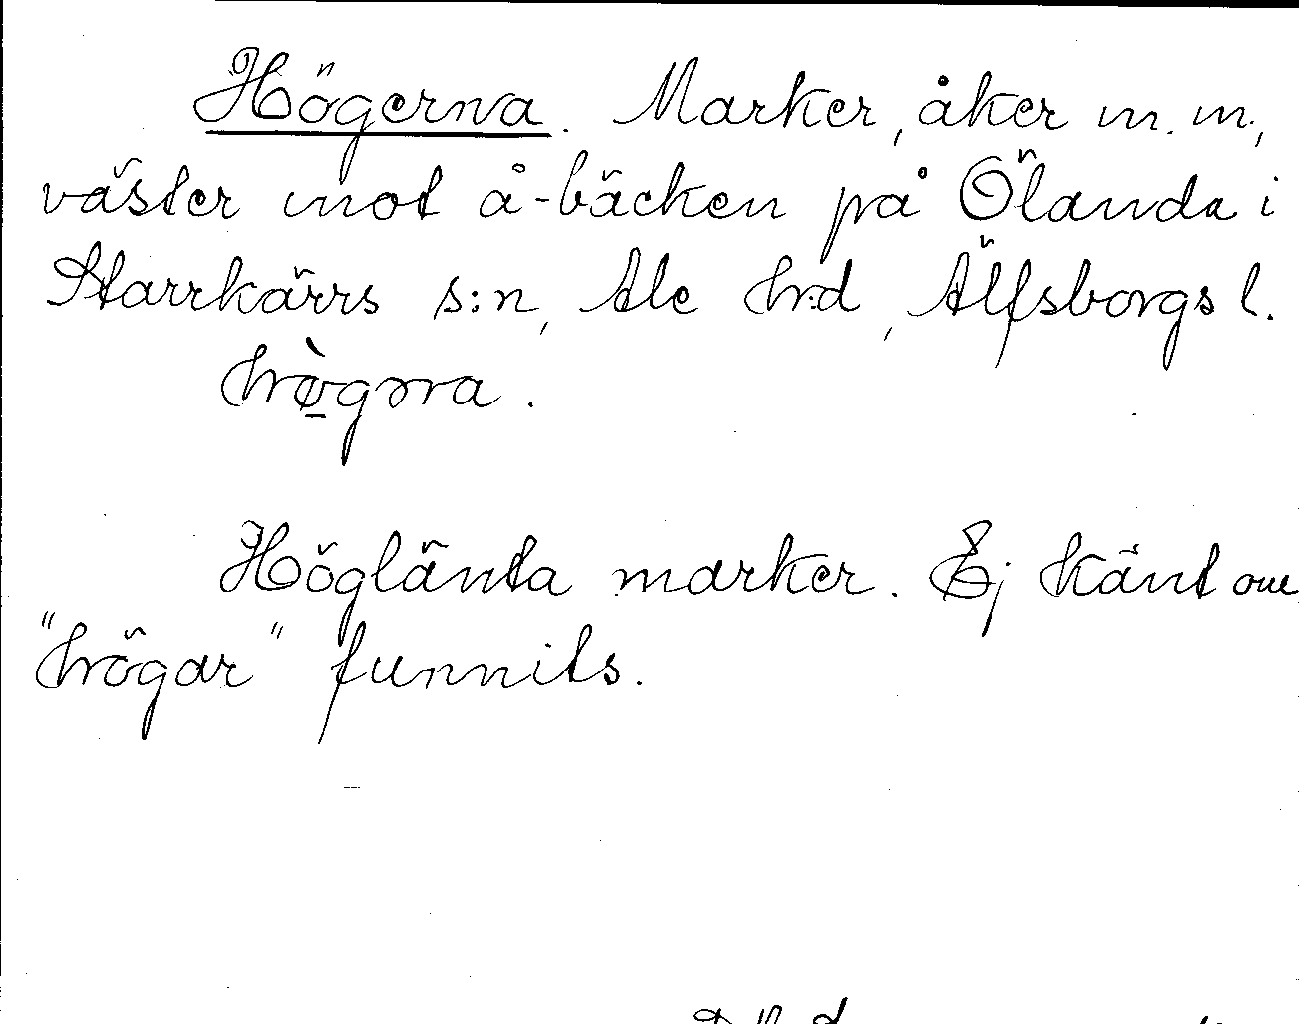 Högerna. Marker, åker m. m.,
väster mot å-bäcken på Ölanda i
Starrkärrs s:n, Ale hr:d, Älfsborgs l.
hø̀gɔra.
Höglänta marker. Ej känt om
"högar" funnits.